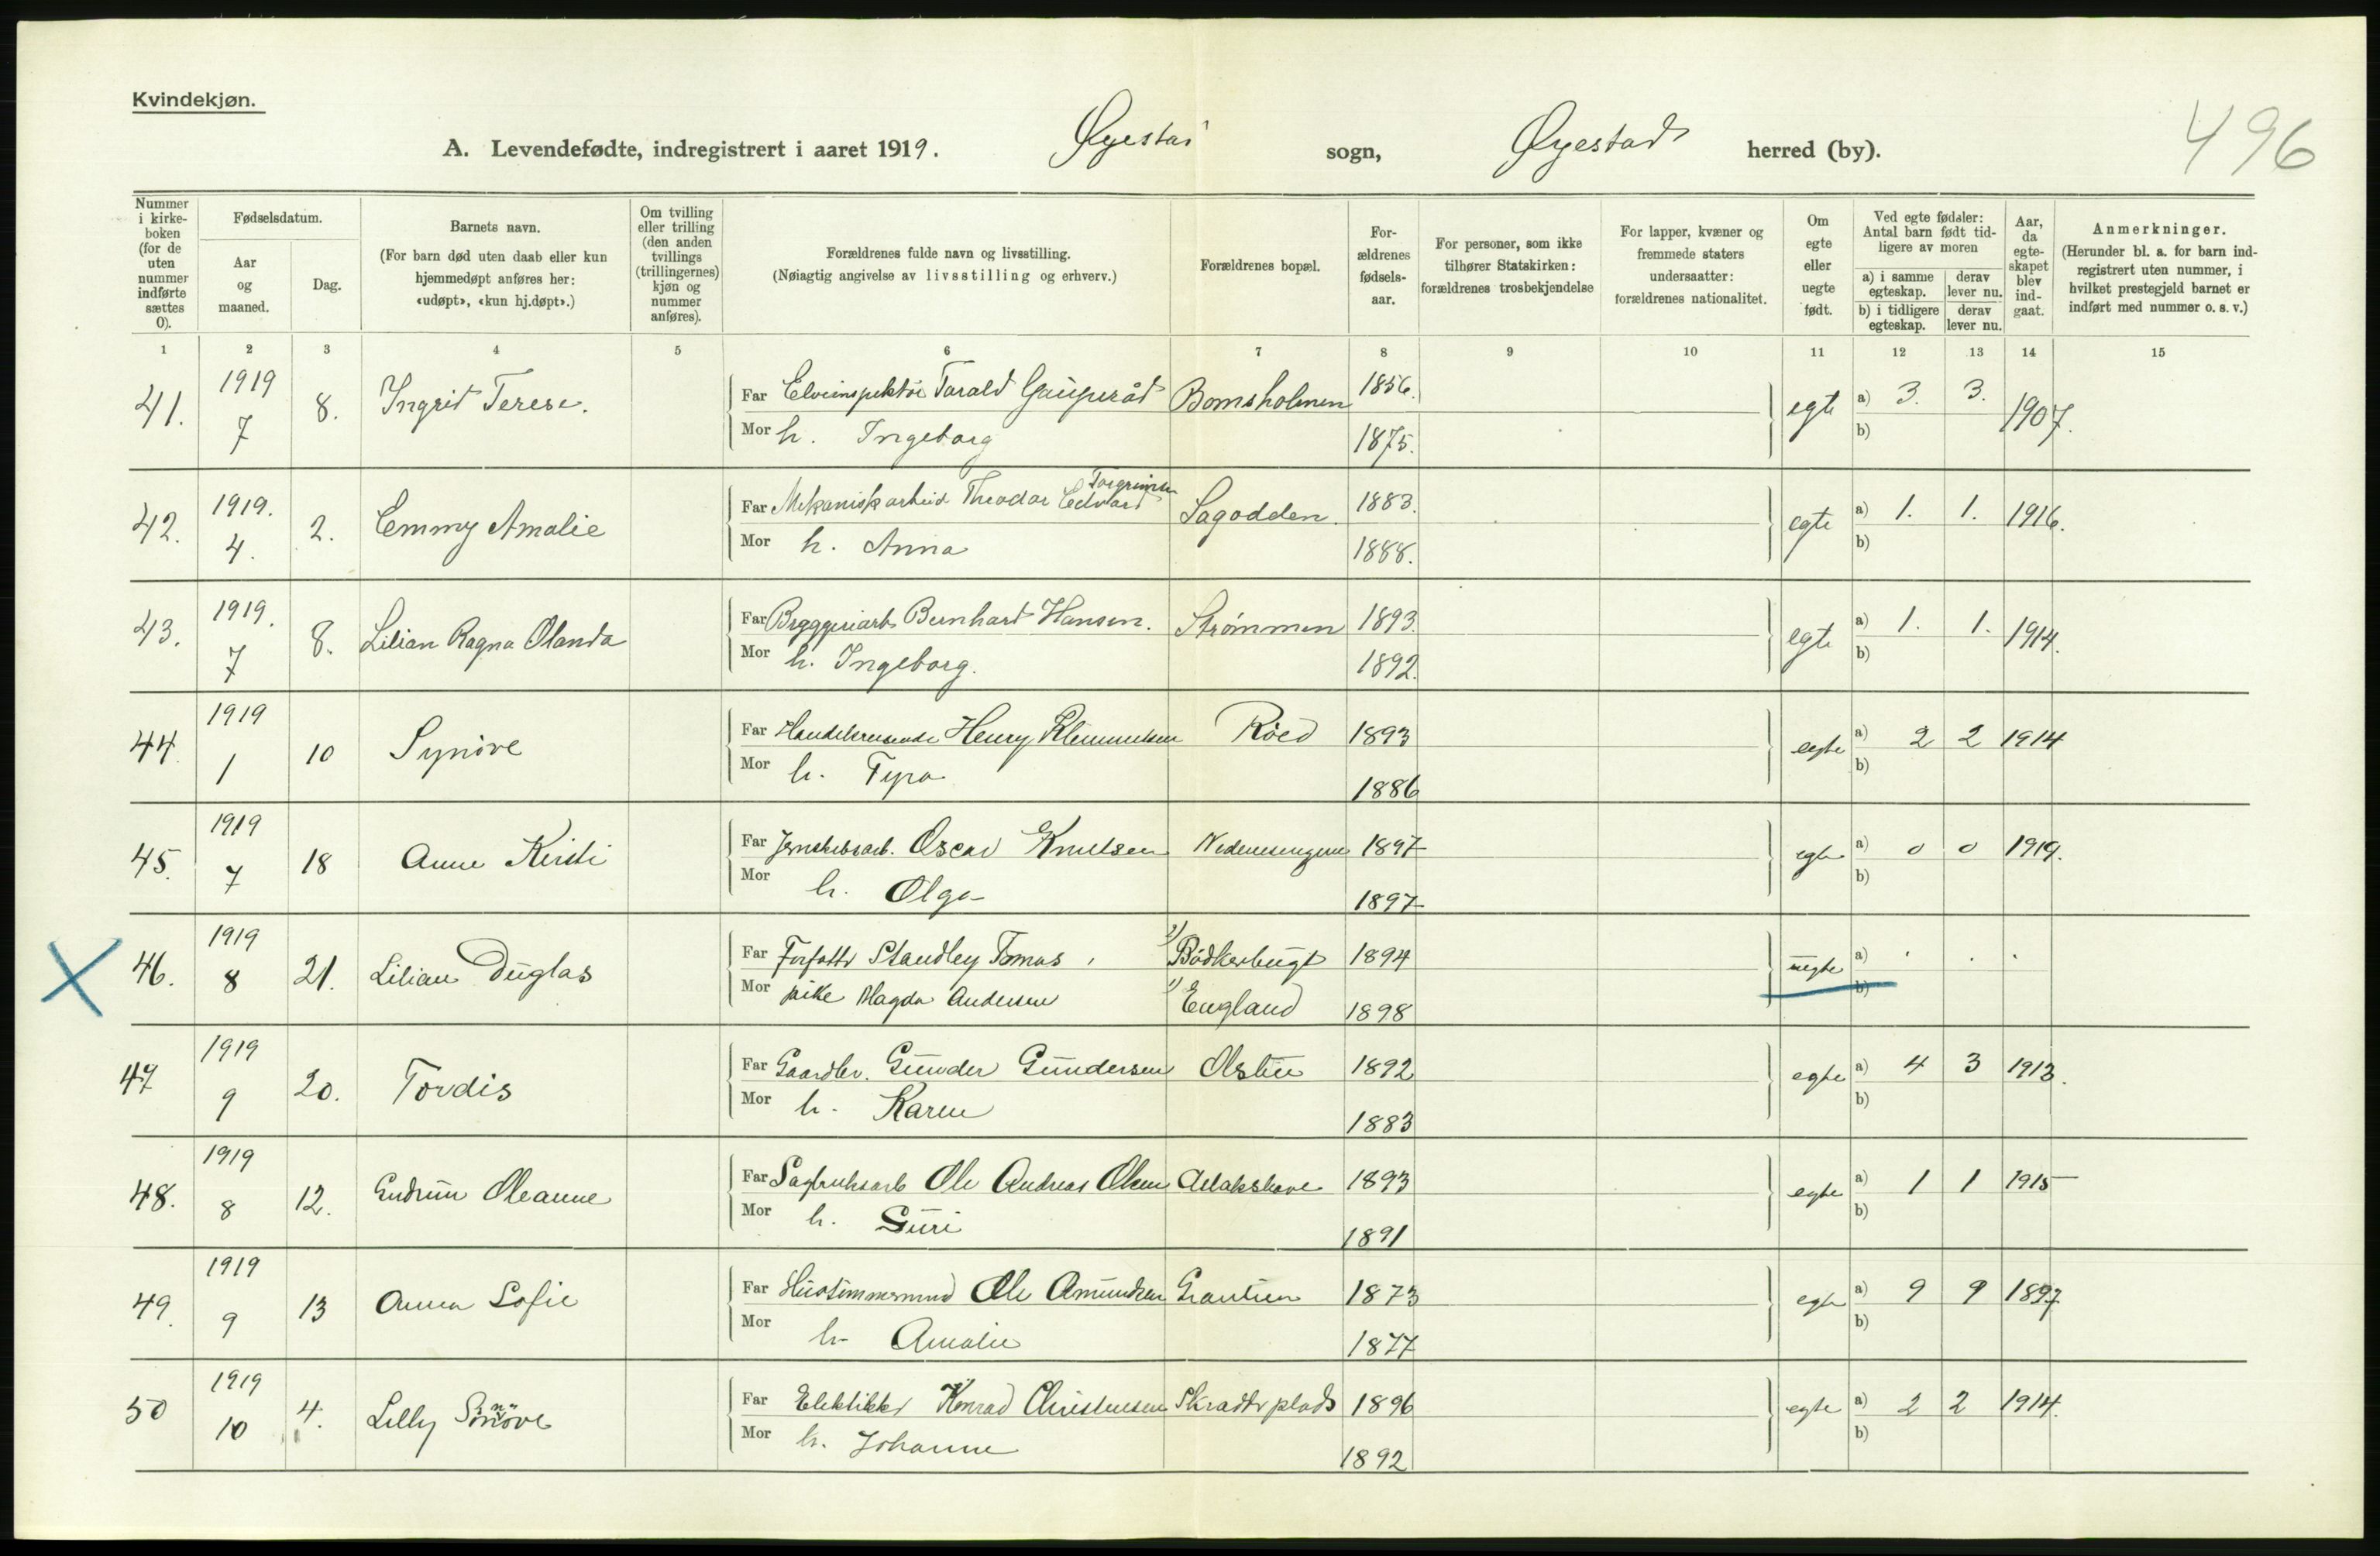 Kvindekjøn.
496
A. Levendefødte, indregistrert i aaret 1919. Øyestad sogn, Øyestad herred (by).
Nummer i kirkeboken (for de uten nummer indførte sættes 0).
Fødselsdatum.
Aar og maaned.
Dag.
Barnets navn.
(For barn død uten daab eller kun hjemmedøpt anføres her: «udøpt», «kun hj.døpt».)
Om tvilling eller trilling (den anden tvillings (trillingernes) kjøn og nummer anføres).
Forældrenes fulde navn og livsstilling.
(Nøiagtig angivelse av livsstilling og erhverv.)
Forældrenes bopæl.
Forældrenes fødselsaar.
For personer, som ikke tilhører Statskirken: forældrenes trosbekjendelse
For lapper, kvæner og fremmede staters undersaatter: forældrenes nationalitet.
Om egte eller uegte født.
Ved egte fødsler: Antal barn født tidligere av moren
a) i samme egteskap. derav lever nu.
b) i tidligere egteskap. derav lever nu.
Aar, da egteskapet blev indgaat.
Anmerkninger.
(Herunder bl. a. for barn indregistrert uten nummer, i hvilket prestegjeld barnet er indført med nummer o. s. v.)
1 2 3 4 5 6 7 8 9 10 11 12 13 14 15
41. 1919 7 8. Ingrid Terese. Far Elveinspektør Tarald Gauperåd Bomsholmen 1856. egte a) 3. 3. 1907.
Mor h. Ingeborg 1875. b)
42. 1919. 4. 2. Emmy Amalie Far Mekanisk arbeid Theodor Edvard Torgrimsen Sagodden. 1883. egte a) 1. 1. 1916.
Mor h. Anna 1888. b)
43. 1919. 7 8. Lilian Ragna Olanda Far Bryggeriarb Bernhart Hansen. Strømmen 1893. egte a) 1. 1. 1914.
Mor h. Ingeborg. 1892. b)
44. 1919 1 10 Synöve Far Handelsreisende Henry Klemmetsen Röed 1893 egte a) 2 2 1914
Mor h. Tyra 1886 b)
45. 1919 7 18 Anne Kirsti Far Jernskibsarb. Oscar Knutsen Nedenesengene 1897 egte a) 0 0 1919.
Mor h. Olga 1897 b)
46. 1919 8 21. Lilian Duglas Far Forfatter Standley Tomas 2) Bödkerbugt 1894 uegte a)
Mor pike Magda Andersen 1) England 1898 b)
47 1919 9 20. Tordis Far Gaardbr. Gunder Gundersen 1892 egte a) 4 3 1913.
Mor h. Karen 1883 b)
48. 1919 8 12. Gudrun Oleanne Far Sagbruksarb Ole Andreas Olsen 1893 egte a) 1 1 1915
Mor h. Guri 1891 b)
49. 1919 9 13 Anna Sofie Far Hustømmermand Ole Amundsen 1873 egte a) 9 9 1897
Mor h. Amalie 1877 b)
50 1919 10 4. Lilly Sönnöve Far Elektiker Konrad Christensen Skradderplads 1896 egte a) 2 2 1914.
Mor h. Johanne 1892 b)